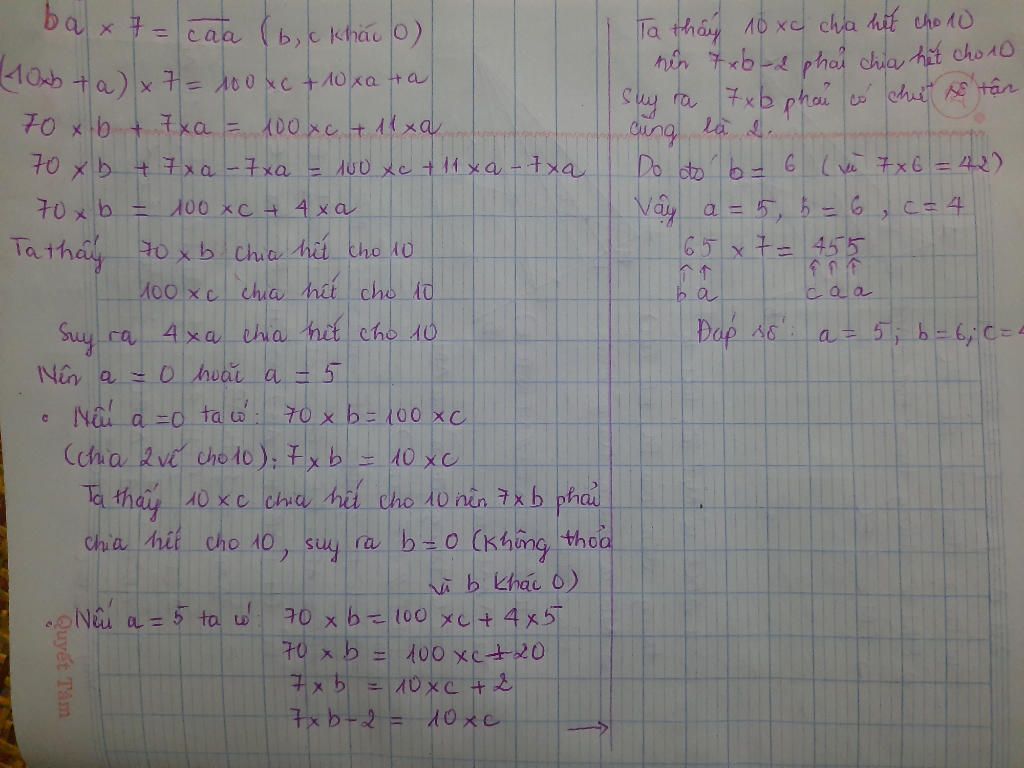 ba × 7 = caa (b, c khác 0)
(10×b + a) × 7 = 100×c + 10×a + a
70 × b + 7×a = 100×c + 11×a
70 × b + 7×a - 7×a = 100×c + 11×a - 7×a
70 × b = 100×c + 4×a
Ta thấy 70×b chia hết cho 10
100×c chia hết cho 10
Suy ra 4×a chia hết cho 10
Nên a = 0 hoặc a = 5
• Nếu a=0 ta có: 70×b=100×c
(chia 2 vế cho 10): 7×b = 10×c
Ta thấy 10×c chia hết cho 10 nên 7×b phải
chia hết cho 10, suy ra b=0 (không thỏa
vì b khác 0)
• Nếu a=5 ta có: 70×b=100×c+4×5
70×b = 100×c+20
7×b = 10×c+2
7×b-2 = 10×c →
Quyết Tâm
Ta thấy 10×c chia hết cho 10
nên 7×b-2 phải chia hết cho 10
Suy ra 7×b phải có chữ số tận
cùng là 2.
Do đó b = 6 (vì 7×6=42)
Vậy a=5, b=6, c=4
65 × 7 = 455
↑↑ ↑↑↑
b a c a a
Đáp số: a=5; b=6; c=4